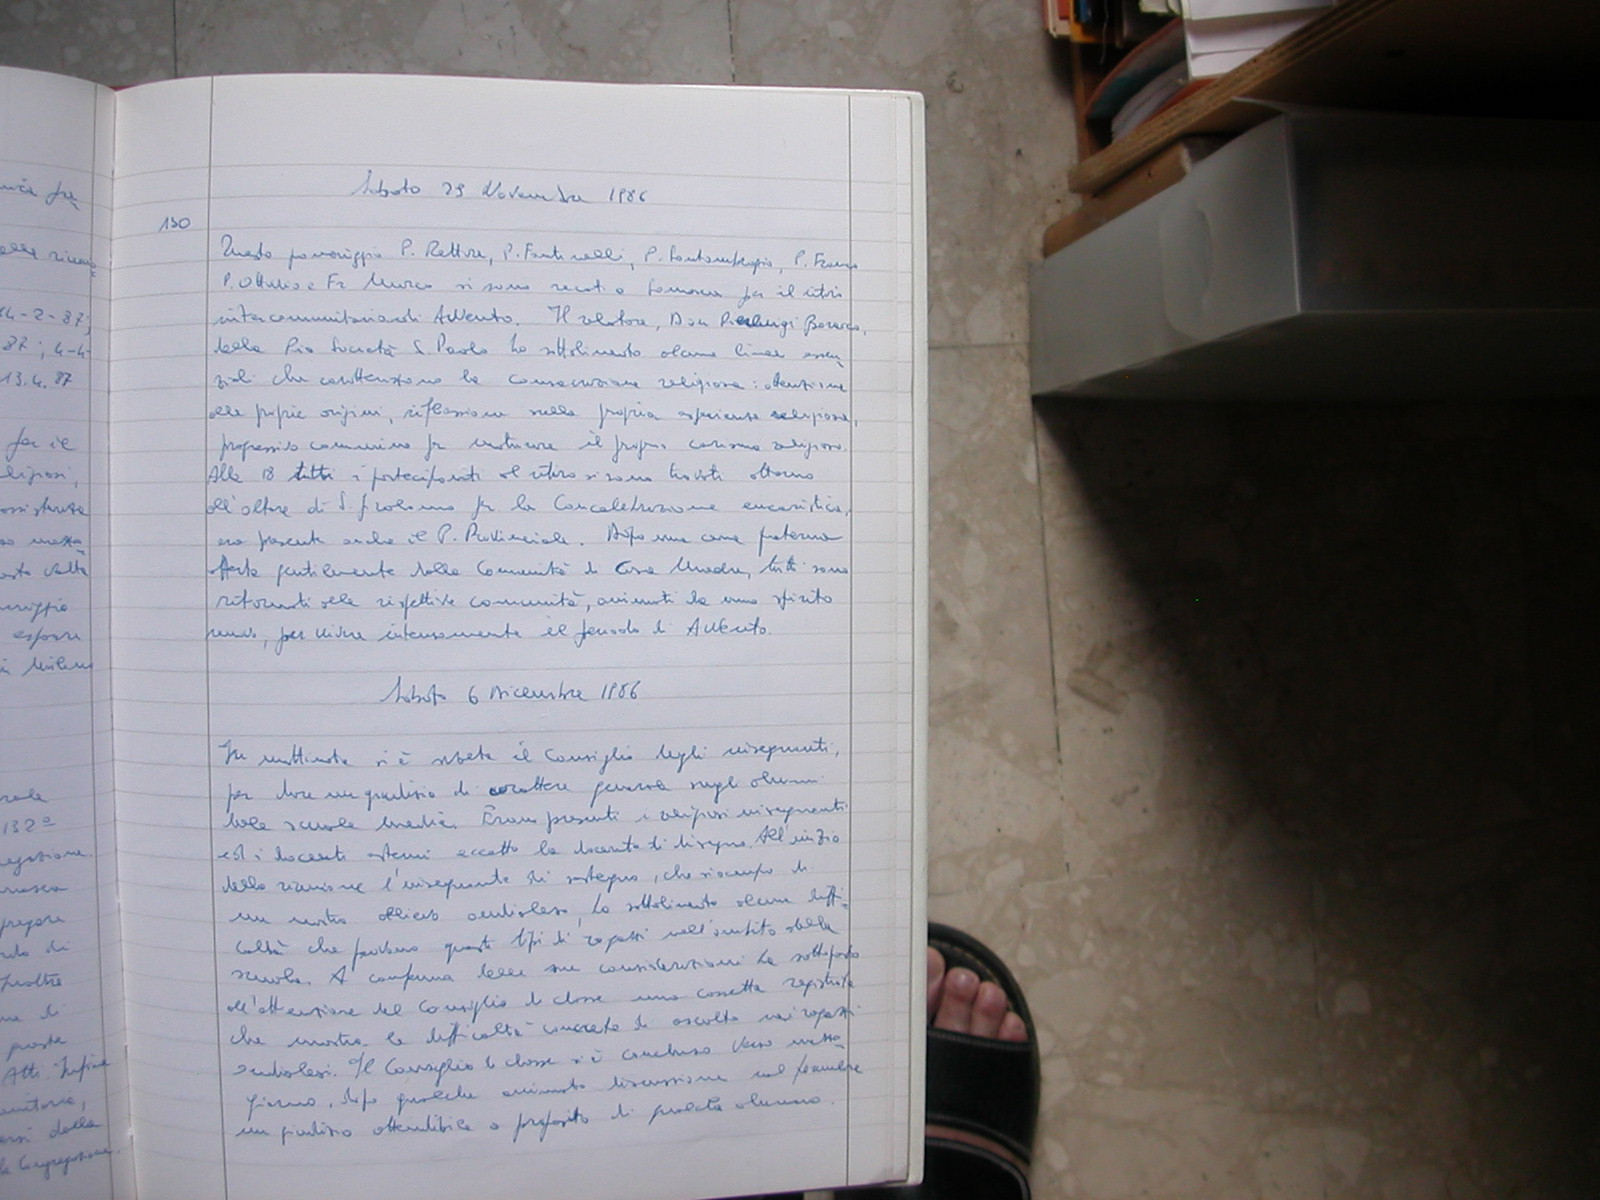 Sabato 29 Novembre 1986
130
Questo pomeriggio P. Rettore, P. Fantinelli, P. Santambrogio, P. Franco
P. Ottavio e Fr Marco si sono recati a Somasca per il ritiro
intercomunitario di Avvento. Il relatore, Don Pierluigi
della Pia Società S. Paolo ha sottolineato alcune linee essen
ziali che caratterizzano la consacrazione religiosa: attenzione
alle proprie origini, riflessione sulla propria esperienza religiosa,
progressivo cammino per maturare il proprio carisma religioso.
Alle 18 tutti i partecipanti al ritiro si sono trovati attorno
all'altare di S. Girolamo per la Concelebrazione eucaristica,
era presente anche il P. Provinciale. Dopo una cena fraterna
offerta gentilmente dalla Comunità di Casa Madre, tutti sono
ritornati alle rispettive comunità, animati da uno spirito
nuovo, per vivere intensamente il periodo di Avvento.
Sabato 6 Dicembre 1986
In mattinata si è svolto il Consiglio degli insegnanti,
per dare un giudizio di carattere generale sugli alunni
della scuola media. Erano presenti i religiosi insegnanti
ed i docenti esterni eccetto la docente di disegno. All'inizio
della riunione l'insegnante di sostegno, che si occupa di
un nostro allievo audioleso, ha sottolineato alcune diffi-
coltà che portano questi tipi di ragazzi nell'ambito della
scuola. A conferma delle sue considerazioni ha sottoposto
all'attenzione del Consiglio di classe una cassetta registrata
che mostra le difficoltà concrete di ascolto nei ragazzi
audiolesi. Il Consiglio di classe si è concluso verso mezzo
giorno, dopo qualche animata discussione nel formulare
un giudizio attendibile a proposito di qualche alunno.
per il
14-2-87;
87; 4-4-
13.4.87
132º
prepara
Inoltre
Atti. Infine
della
la Congregazione.